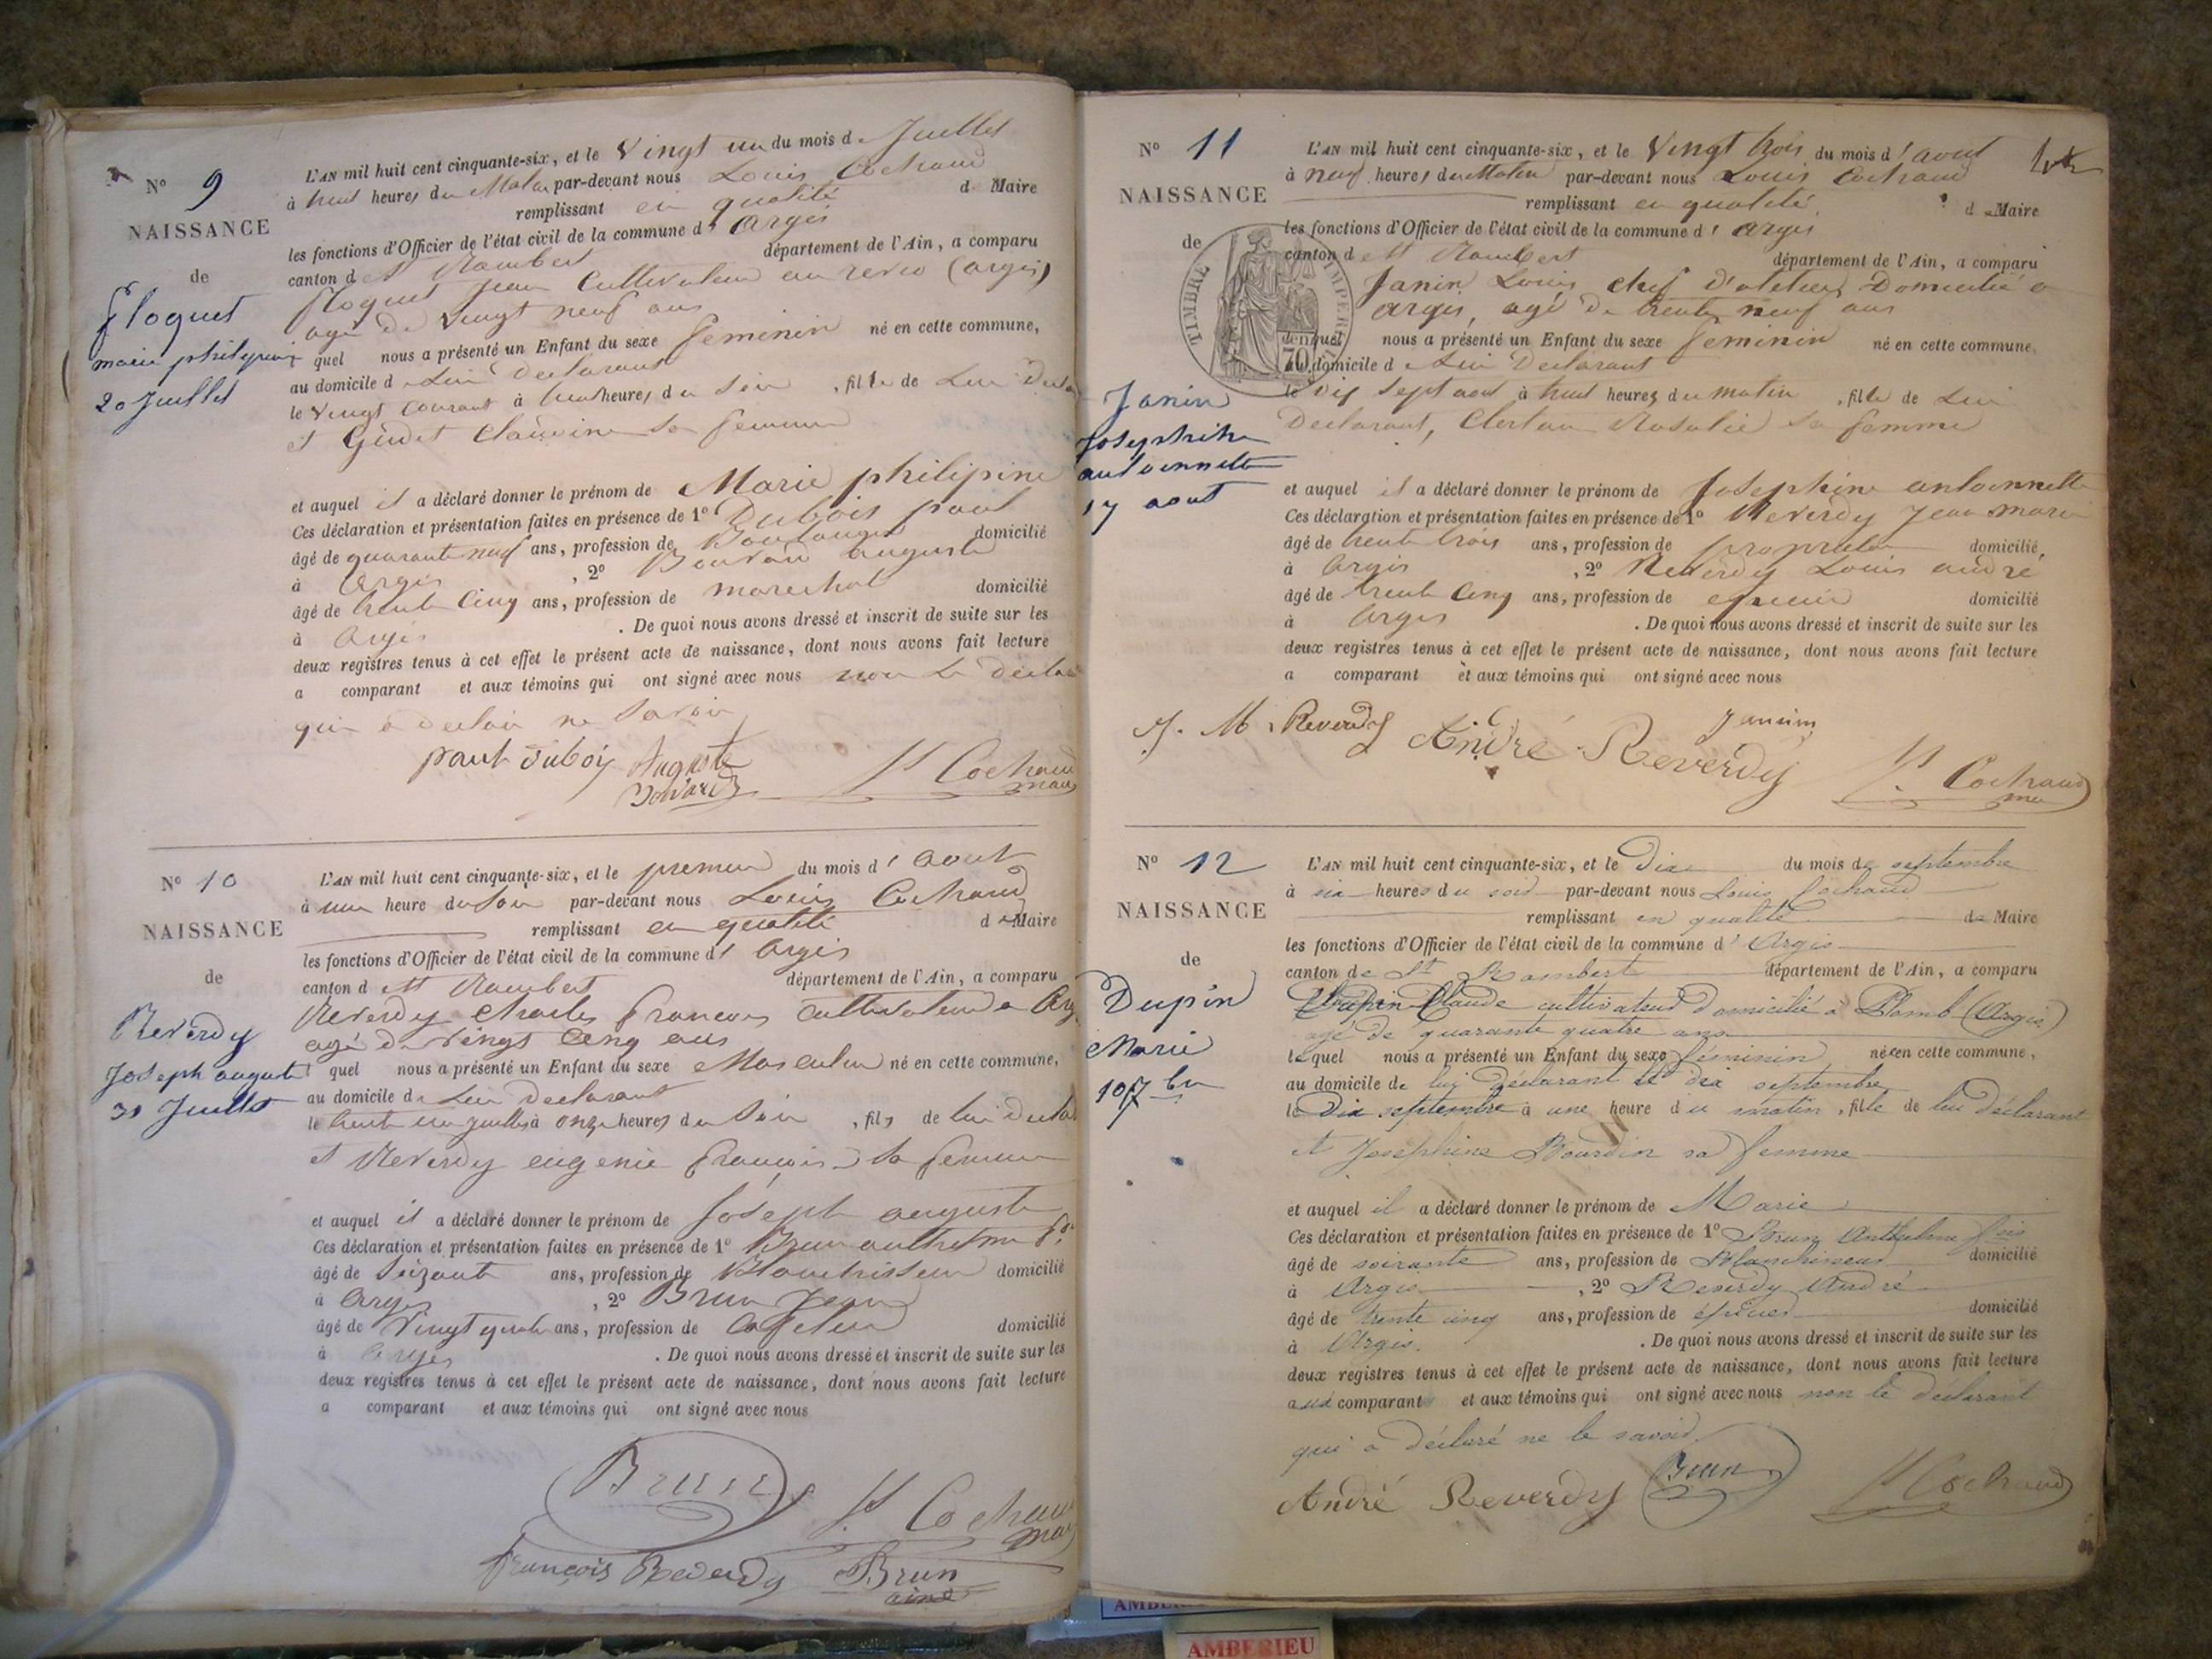 N° 9
NAISSANCE
de
floquet
marie philipine
20 Juillet
L'AN mil huit cent cinquante-six, et le Vingt un du mois de Juillet
à huit heures du Matin par-devant nous Louis Cochaud
remplissant en qualité de Maire
les fonctions d'Officier de l'état civil de la commune d' argis
canton de St Rambert département de l'Ain, a comparu
floquet jean Cultivateur au (argis)
agé de Vingt neuf ans
quel nous a présenté un Enfant du sexe feminin né en cette commune,
au domicile de Lui Declarant
le Vingt Courant à heures du Soir, fille de Lui
et Claudine Sa femme
et auquel il a déclaré donner le prénom de Marie philipine
Ces déclaration et présentation faites en présence de 1° Dubois paul
âgé de quarante neuf ans, profession de Boulanger domicilié
à Argis, 2° auguste
âgé de trente Cinq ans, profession de marechal domicilié
à Argis. De quoi nous avons dressé et inscrit de suite sur les
deux registres tenus à cet effet le présent acte de naissance, dont nous avons fait lecture
a comparant et aux témoins qui ont signé avec nous non le
qui a ne Savoir
paul duboiy Auguste
Ls Cochaud
maire
N° 10
NAISSANCE
de
Reverdy
Joseph auguste
31 Juillet
L'AN mil huit cent cinquante-six, et le premier du mois d' aout
à une heure du Soir par-devant nous Louis Cochaud
remplissant en qualité de Maire
les fonctions d'Officier de l'état civil de la commune d' Argis
canton de St Rambert département de l'Ain, a comparu
Reverdy Charles françois Cultivateur a
agé de Vingt Cinq ans
quel nous a présenté un Enfant du sexe Masculin né en cette commune,
au domicile de Lui Declarant
le trente un juillet à onze heures du Soir, fils de lui
et Reverdy eugenie françoise Sa femme
et auquel il a déclaré donner le prénom de Joseph auguste
Ces déclaration et présentation faites en présence de 1° Brun
âgé de Soizante ans, profession de Blanchisseur domicilié
à Argis, 2° Brun Jean
âgé de Vingt quatre ans, profession de domicilié
à Argis. De quoi nous avons dressé et inscrit de suite sur les
deux registres tenus à cet effet le présent acte de naissance, dont nous avons fait lecture
a comparant et aux témoins qui ont signé avec nous
Brun Ls Cochaud
françois Reverdy Brun
ainé
N° 11
NAISSANCE
de
TIMBRE IMPERIAL
70
Janin
Josephine
antoinnette
17 aout
L'AN mil huit cent cinquante-six, et le Vingt trois du mois d' aout
à neuf heures du Matin par-devant nous Louis Cochaud
remplissant en qualité de Maire
les fonctions d'Officier de l'état civil de la commune d' argis
canton de St Rambert département de l'Ain, a comparu
Janin Louis chef d'atelier Domicilié a
argis, agé de trente neuf ans
quel nous a présenté un Enfant du sexe feminin né en cette commune,
au domicile de Lui Declarant
le dix Sept aout à huit heures du matin, fille de Lui
Declarant, Rosalie Sa femme
et auquel il a déclaré donner le prénom de Josephine antoinnette
Ces déclaration et présentation faites en présence de 1° Reverdy Jean marie
âgé de trente trois ans, profession de domicilié
à Argis, 2° Reverdy Louis andré
âgé de trente Cinq ans, profession de epicier domicilié
à Argis. De quoi nous avons dressé et inscrit de suite sur les
deux registres tenus à cet effet le présent acte de naissance, dont nous avons fait lecture
a comparant et aux témoins qui ont signé avec nous
J. M. Reverdy André Reverdy
Ls Cochaud
N° 12
NAISSANCE
de
Dupin
Marie
10 7bre
L'AN mil huit cent cinquante-six, et le Dix du mois de septembre
à six heures du soir par-devant nous Louis Cochaud
remplissant en qualité de Maire
les fonctions d'Officier de l'état civil de la commune d' Argis
canton de St Rambert département de l'Ain, a comparu
Dupin Claude cultivateur domicilié à (Argis)
agé de quarante quatre ans
lequel nous a présenté un Enfant du sexe féminin née en cette commune,
au domicile de lui déclarant le dix septembre
le Dix septembre à une heure du matin, fille de lui déclarant
et Josephine Bourdin sa femme
et auquel il a déclaré donner le prénom de Marie
Ces déclaration et présentation faites en présence de 1° Brun Anthelme
âgé de soixante ans, profession de Blanchisseur domicilié
à Argis, 2° Reverdy André
âgé de trente cinq ans, profession de épicier domicilié
à Argis. De quoi nous avons dressé et inscrit de suite sur les
deux registres tenus à cet effet le présent acte de naissance, dont nous avons fait lecture
au comparant et aux témoins qui ont signé avec nous non le déclarant
qui a déclaré ne le savoir
André Reverdy Brun Ls Cochaud
AMBERIEU